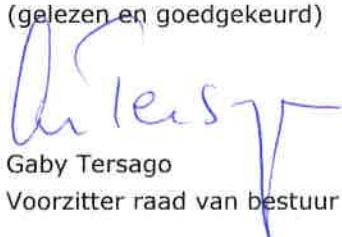 (gelezen en goedgekeurd)
Gaby Tersago
Voorzitter raad van bestuur